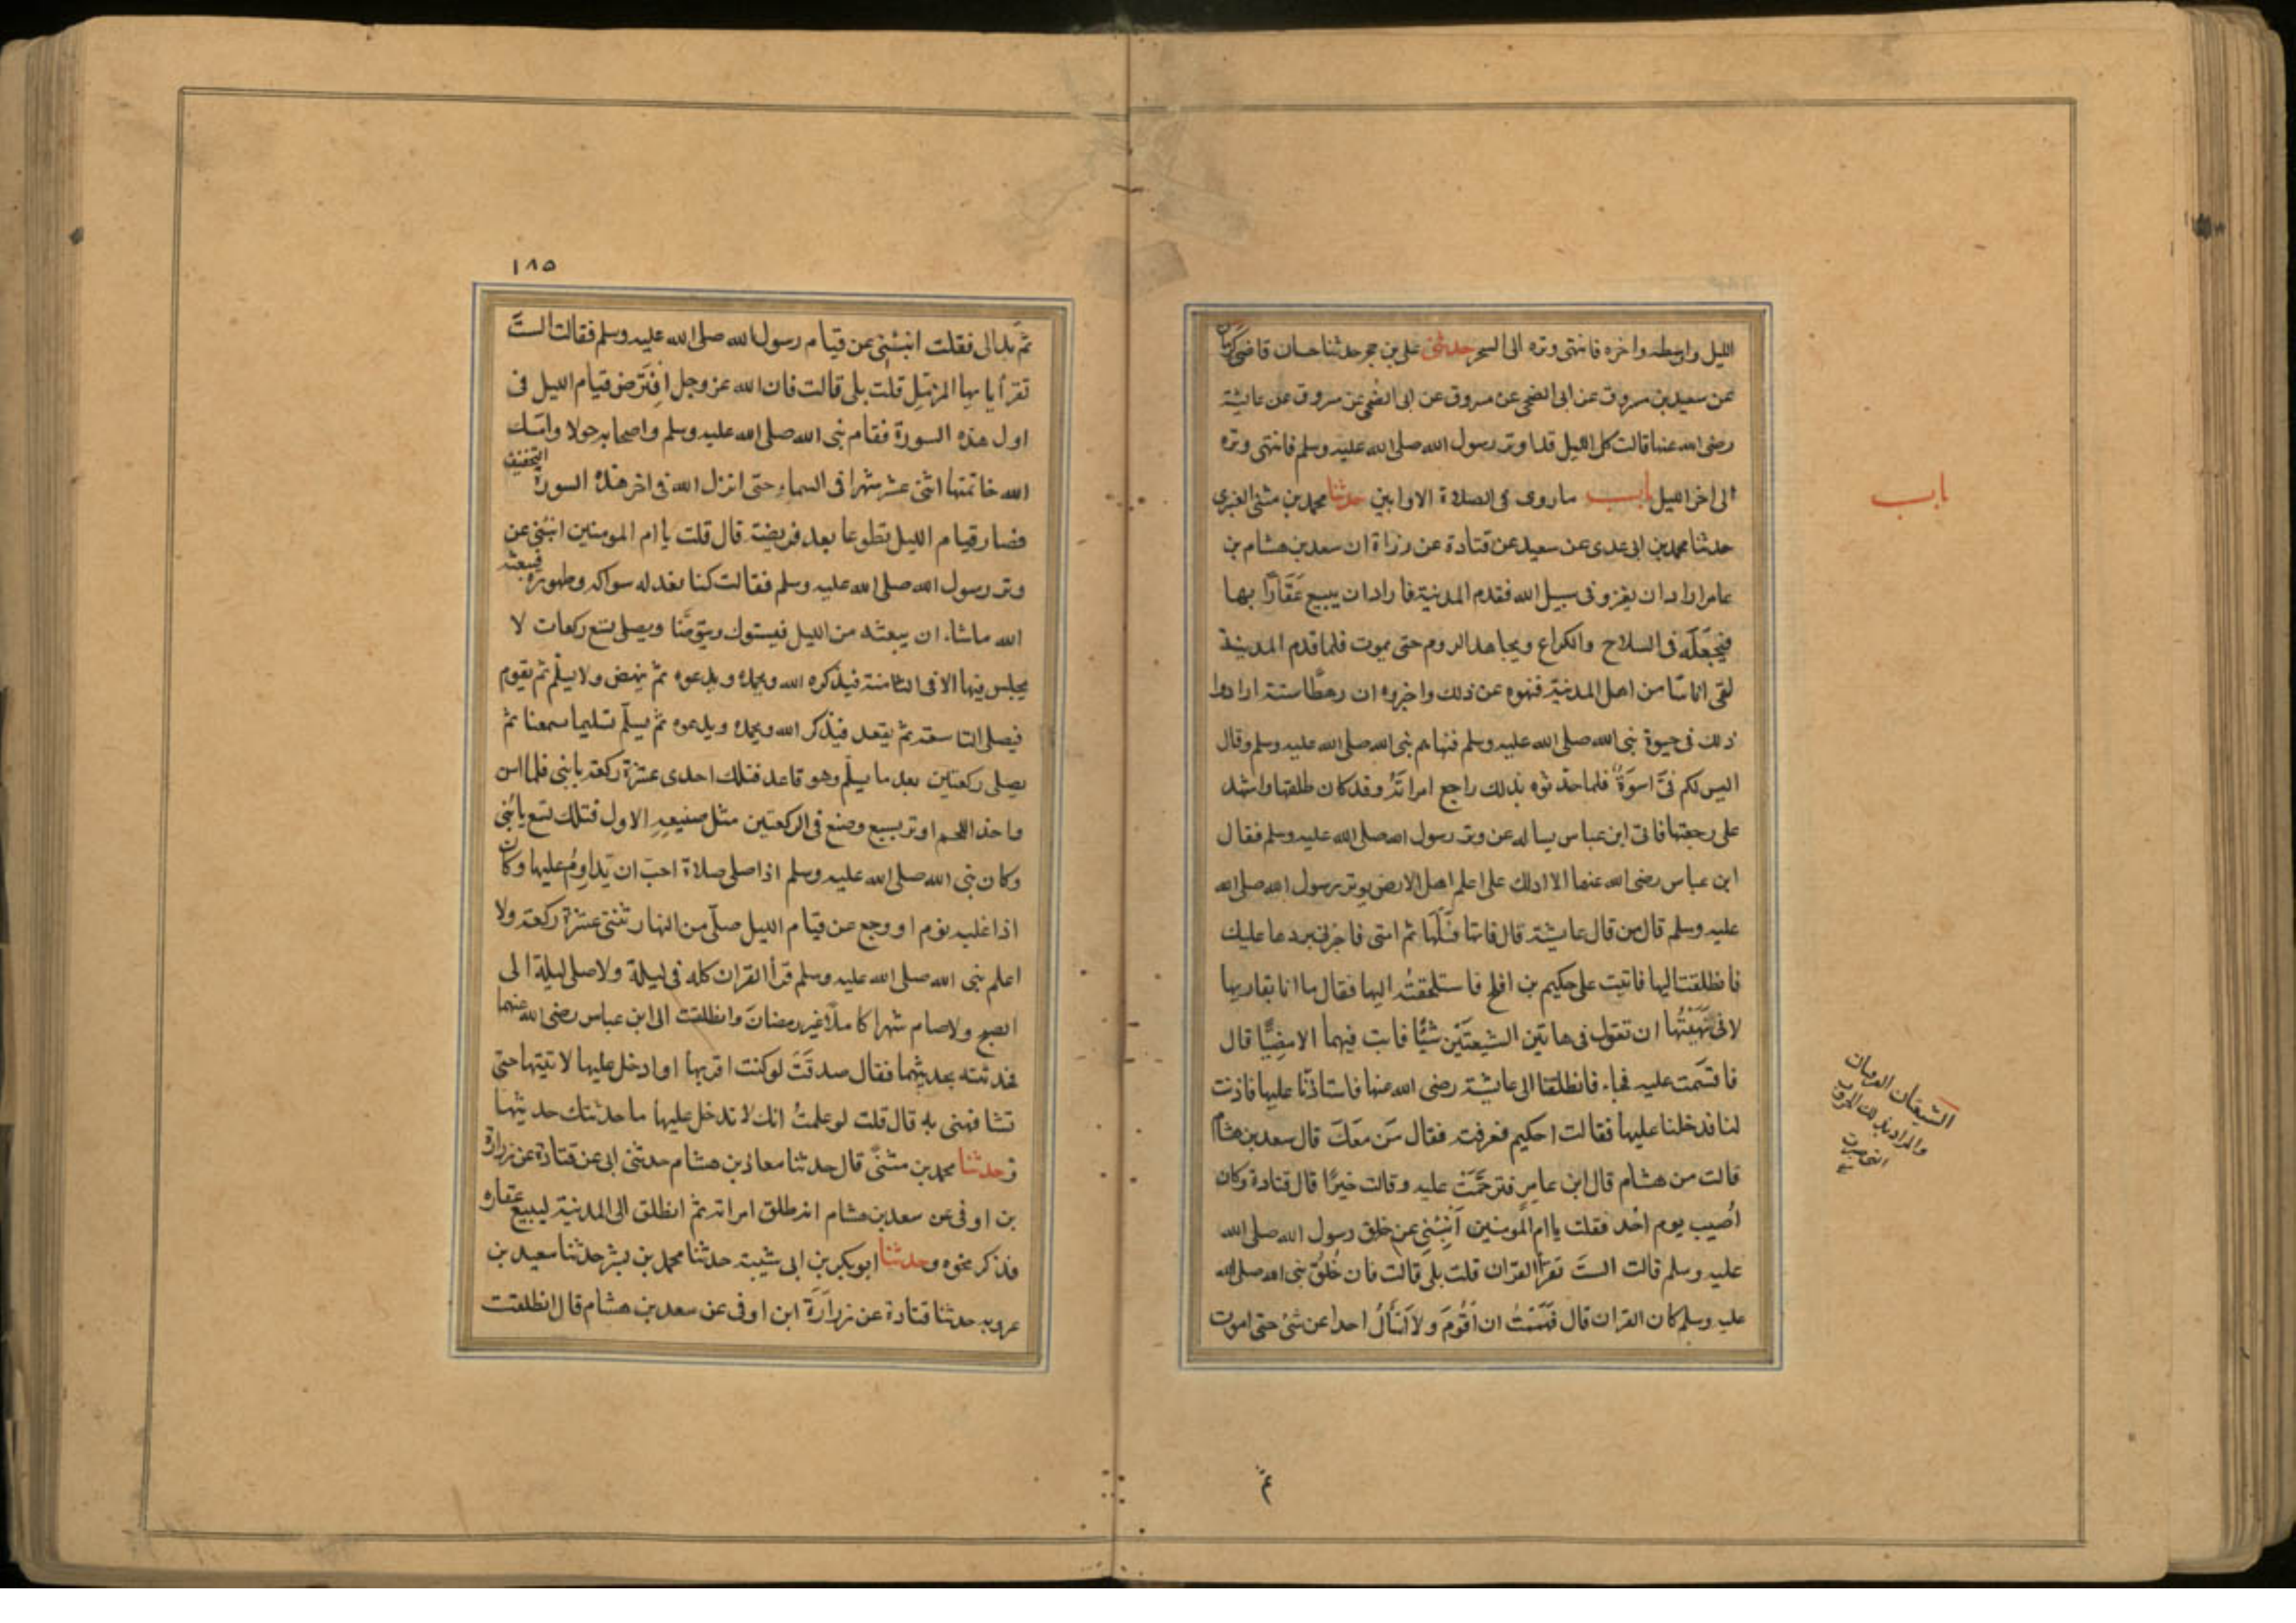 الليل واوسطه واخره فانتهى وتره الى السحر حدثنى على بن حجر حدثنا حسان قاضى كرمان
عن سعيد بن مسروق عن ابى الضحى عن مسروق عن ابى الضحى عن مسروق عن عايشة
رضى الله عنها قالت كل الليل قد اوتر رسول الله صلى الله عليه وسلم فانتهى وتره
الى اخر الليل باب ما روى فى الصلاة الاوابين حدثنا محمد بن مثنى العنزى
حدثنا محمد بن ابى عدى عن سعيد عن قتادة عن زرارة ان سعد بن هشام بن
عامر اراد ان يغزو فى سبيل الله فقدم المدنية فاراد ان يبيع عَقَارًا بها
فيجعَلَه فى السلاح والكراع ويجاهد الروم حتى يموت فلما قدم المدينة
لقى اناسًا من اهل المدنية فنهوه عن ذلك واخبروه ان رهطًا ستة ارادوا
ذلك فى حيوة نبى الله صلى الله عليه وسلم فنهاهم نبى الله صلى الله عليه وسلم وقال
اليس لكم فىَّ اسوَةٌ فلما حدثوه بذلك راجع امراتَهُ وقد كان طلقها واشهد
على رجعتها فاتى ابن عباس يساله عن وتر رسول الله صلى الله عليه وسلم فقال
ابن عباس رضى الله عنهما الا ادلك على اعلم اهل الارض بوتر رسول الله صلى الله
عليه وسلم قال من قال عايشة قال فاتها فسَلْهَا ثم ائتنى فاخبرنى بردها عليك
فانطلقت اليها فاتيت على حكيم بن افلح فاستلحقتُه اليها فقال ما انا بقاربها
لانى نَهَيْتُها ان تقول فى هاتين الشيعتَيْن شئًا فابت فيهما الا مضِيًّا قال
فاقسَمت عليه فجاء فانطلقنا الى عايشة رضى الله عنها فاستاذنّا عليها فاذنت
لنا فدخلنا عليها فقالت احكيم فعرفته فقال مَن معَكَ قال سعد بن هشام
قالت من هشام قال ابن عامِرٍ فترحَّمَتْ عليه وقالت خيرًا قال قتادة وكان
اُصيب يوم اُحُد فقلت يا ام المُومنين اَنبِئينى عن خلق رسول الله صلى الله
عليه وسلم قالت الستَ تقرأ القران قلت بلى قالت فان خُلُقَ نبى الله صلى الله
عليه وسلم كان القران قال فَهَمَمْتُ ان اَقُومَ ولا اَسْأَلُ احدا عن شئ حتى اموت
باب
الشيعتان الفرقتان
والمراد تلك الحروب
ثم
١٨٥
ثمّ بدا لى فقلت انبئينى عن قيام رسول الله صلى الله عليه وسلم فقالت الستَ
تقرأ يايها المزمّلِ قلت بلى قالت فان الله عز وجل افتَرض قيام الليل فى
اول هذه السورة فقام نبى الله صلى الله عليه وسلم واصحابه حولا وامسك
الله خاتمتها اثنى عشر شهرا فى السماء حتى انزل الله فى اخر هذه السورة التخفيف
فصار قيام الليل تطوعا بعد فريضة قال قلت يا ام المومنين انبئينى عن
وتر رسول الله صلى الله عليه وسلم فقالت كنا نعد له سواكه وطهوره فيبعثه
الله ماشاء ان يبعثه من الليل فيستوك ويتوضّا ويصلى تسع ركعات لا
يجلس فيها الا فى الثامنة فيذكره الله ويحمده ويدعوه ثمّ ينهض ولا يسلّم ثم يقوم
فيصلى التاسعة ثمّ يقعد فيذكر الله ويحمده ويدعوه ثمّ يسلّم تسليما سمعنا ثمّ
يصلى ركعتين بعد ما يسلّم وهو قاعد فتلك احدى عشرة ركعة يابنى فلما اسن
واخذ اللحم اوتر بسبع وصنع فى الركعتين مثل صنيعِهِ الاول فتلك تسع يابُنَى
وكان نبى الله صلى الله عليه وسلم اذا صلى صلاة احبّ ان يُداوِمُ عليها وكان
اذا غلبه نوم او وجع عن قيام الليل صلّى من النهار ثنتى عشرة ركعة ولا
اعلم نبى الله صلى الله عليه وسلم قرأ القران كله فى ليلة ولا صلى ليلة الى
الصبح ولا صام شهرا كاملاً غير رمضانَ وانطلقت الى ابن عباس رضى الله عنهما
فحدثته بحديثهما فقال صدقَتَ لو كنت اقربها او ادخل عليها لاتيتها حتى
تشافهنى به قال قلت لو علمتُ انك لا تدخل عليها ما حدثتك حديثها
وحدثنا محمد بن مثنىَّ قال حدثنا معاذ بن هشام حدثنى ابى عن قتادة عن زرارة
بن اوفى عن سعد بن هشام انه طلق امراته ثمّ انطلق الى المدنية ليبيع عقاره
فذكر نحوه وحدثنا ابوبكر بن ابى شيبة حدثنا محمد بن بشر حدثنا سعيد بن
عروبه حدثنا قتادة عن زرَارَةَ ابن اوفى عن سعد بن هشام قال انطلقت